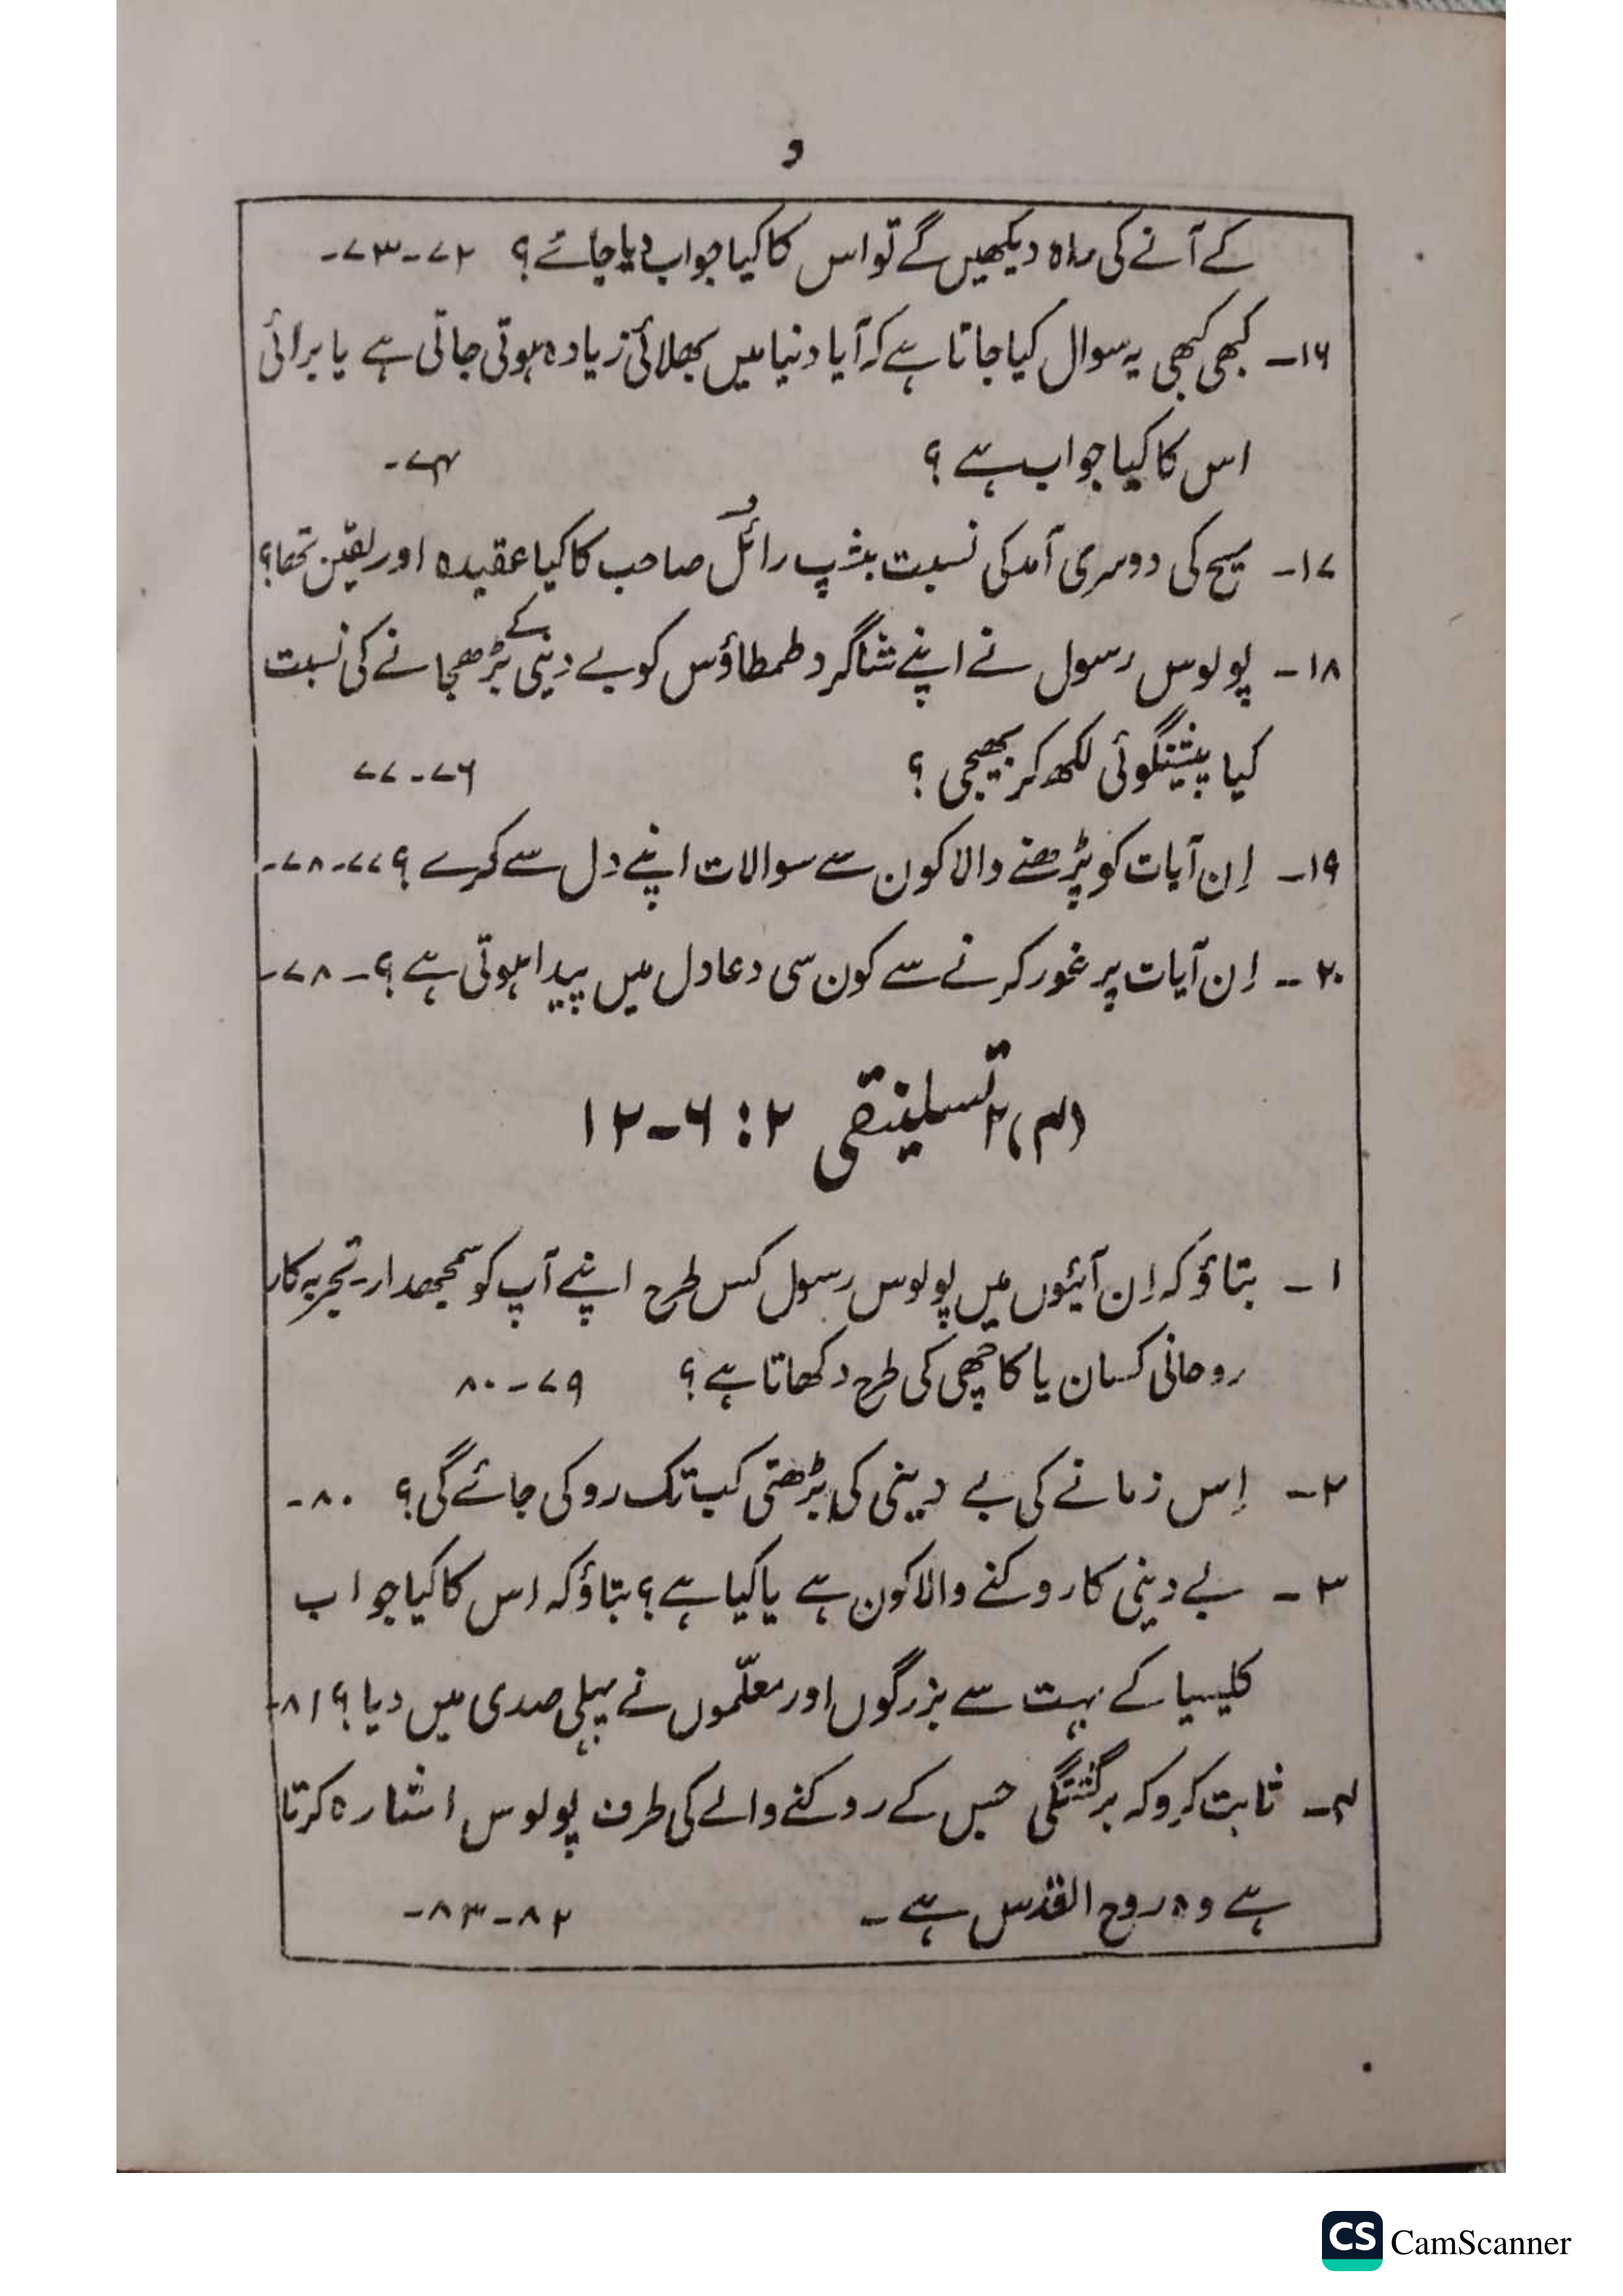 و
کے آنے کی راہ دیکھیں گے تو اس کا کیا جواب دیا جائے؟ ۷۲-۷۳-
۱۶- کبھی کبھی یہ سوال کیا جاتا ہے کہ آیا دنیا میں بھلائی زیادہ ہوتی جاتی ہے یا برائی
اس کا کیا جواب ہے؟ ۷۴-
۱۷- مسیح کی دوسری آمد کی نسبت بشپ رائل صاحب کا کیا عقیدہ اور یقین تھا؟
۱۸- پولوس رسول نے اپنے شاگرد طمطاؤس کو بے دینی کے بڑھ جانے کی نسبت
کیا پیشینگوئی لکھ کر بھیجی؟ ۷۶-۷۷
۱۹- اِن آیات کو پڑھنے والا کون سے سوالات اپنے دل سے کرے؟ ۷۷-۷۸-
۲۰- اِن آیات پر غور کرنے سے کون سی دعا دل میں پیدا ہوتی ہے؟- ۷۸-
(۴) ۲ تسلینقی ۲ : ۶-۱۲
۱- بتاؤ کہ اِن آیتوں میں پولوس رسول کس طرح اپنے آپ کو سمجھدار-تجربہ کار
روحانی کسان یا کاچھی کی طرح دکھاتا ہے؟ ۷۹-۸۰
۲- اِس زمانے کی بے دینی کی بڑھتی کب تک روکی جائے گی؟ ۸۰-
۳- بے دینی کا روکنے والا کون ہے یا کیا ہے؟ بتاؤ کہ اس کا کیا جواب
کلیسیا کے بہت سے بزرگوں اور معلّموں نے پہلی صدی میں دیا؟ ۸۱-
۴- ثابت کرو کہ برگشتگی جس کے روکنے والے کی طرف پولوس اشارہ کرتا
ہے وہ روح القدس ہے- ۸۲-۸۳-
CS CamScanner